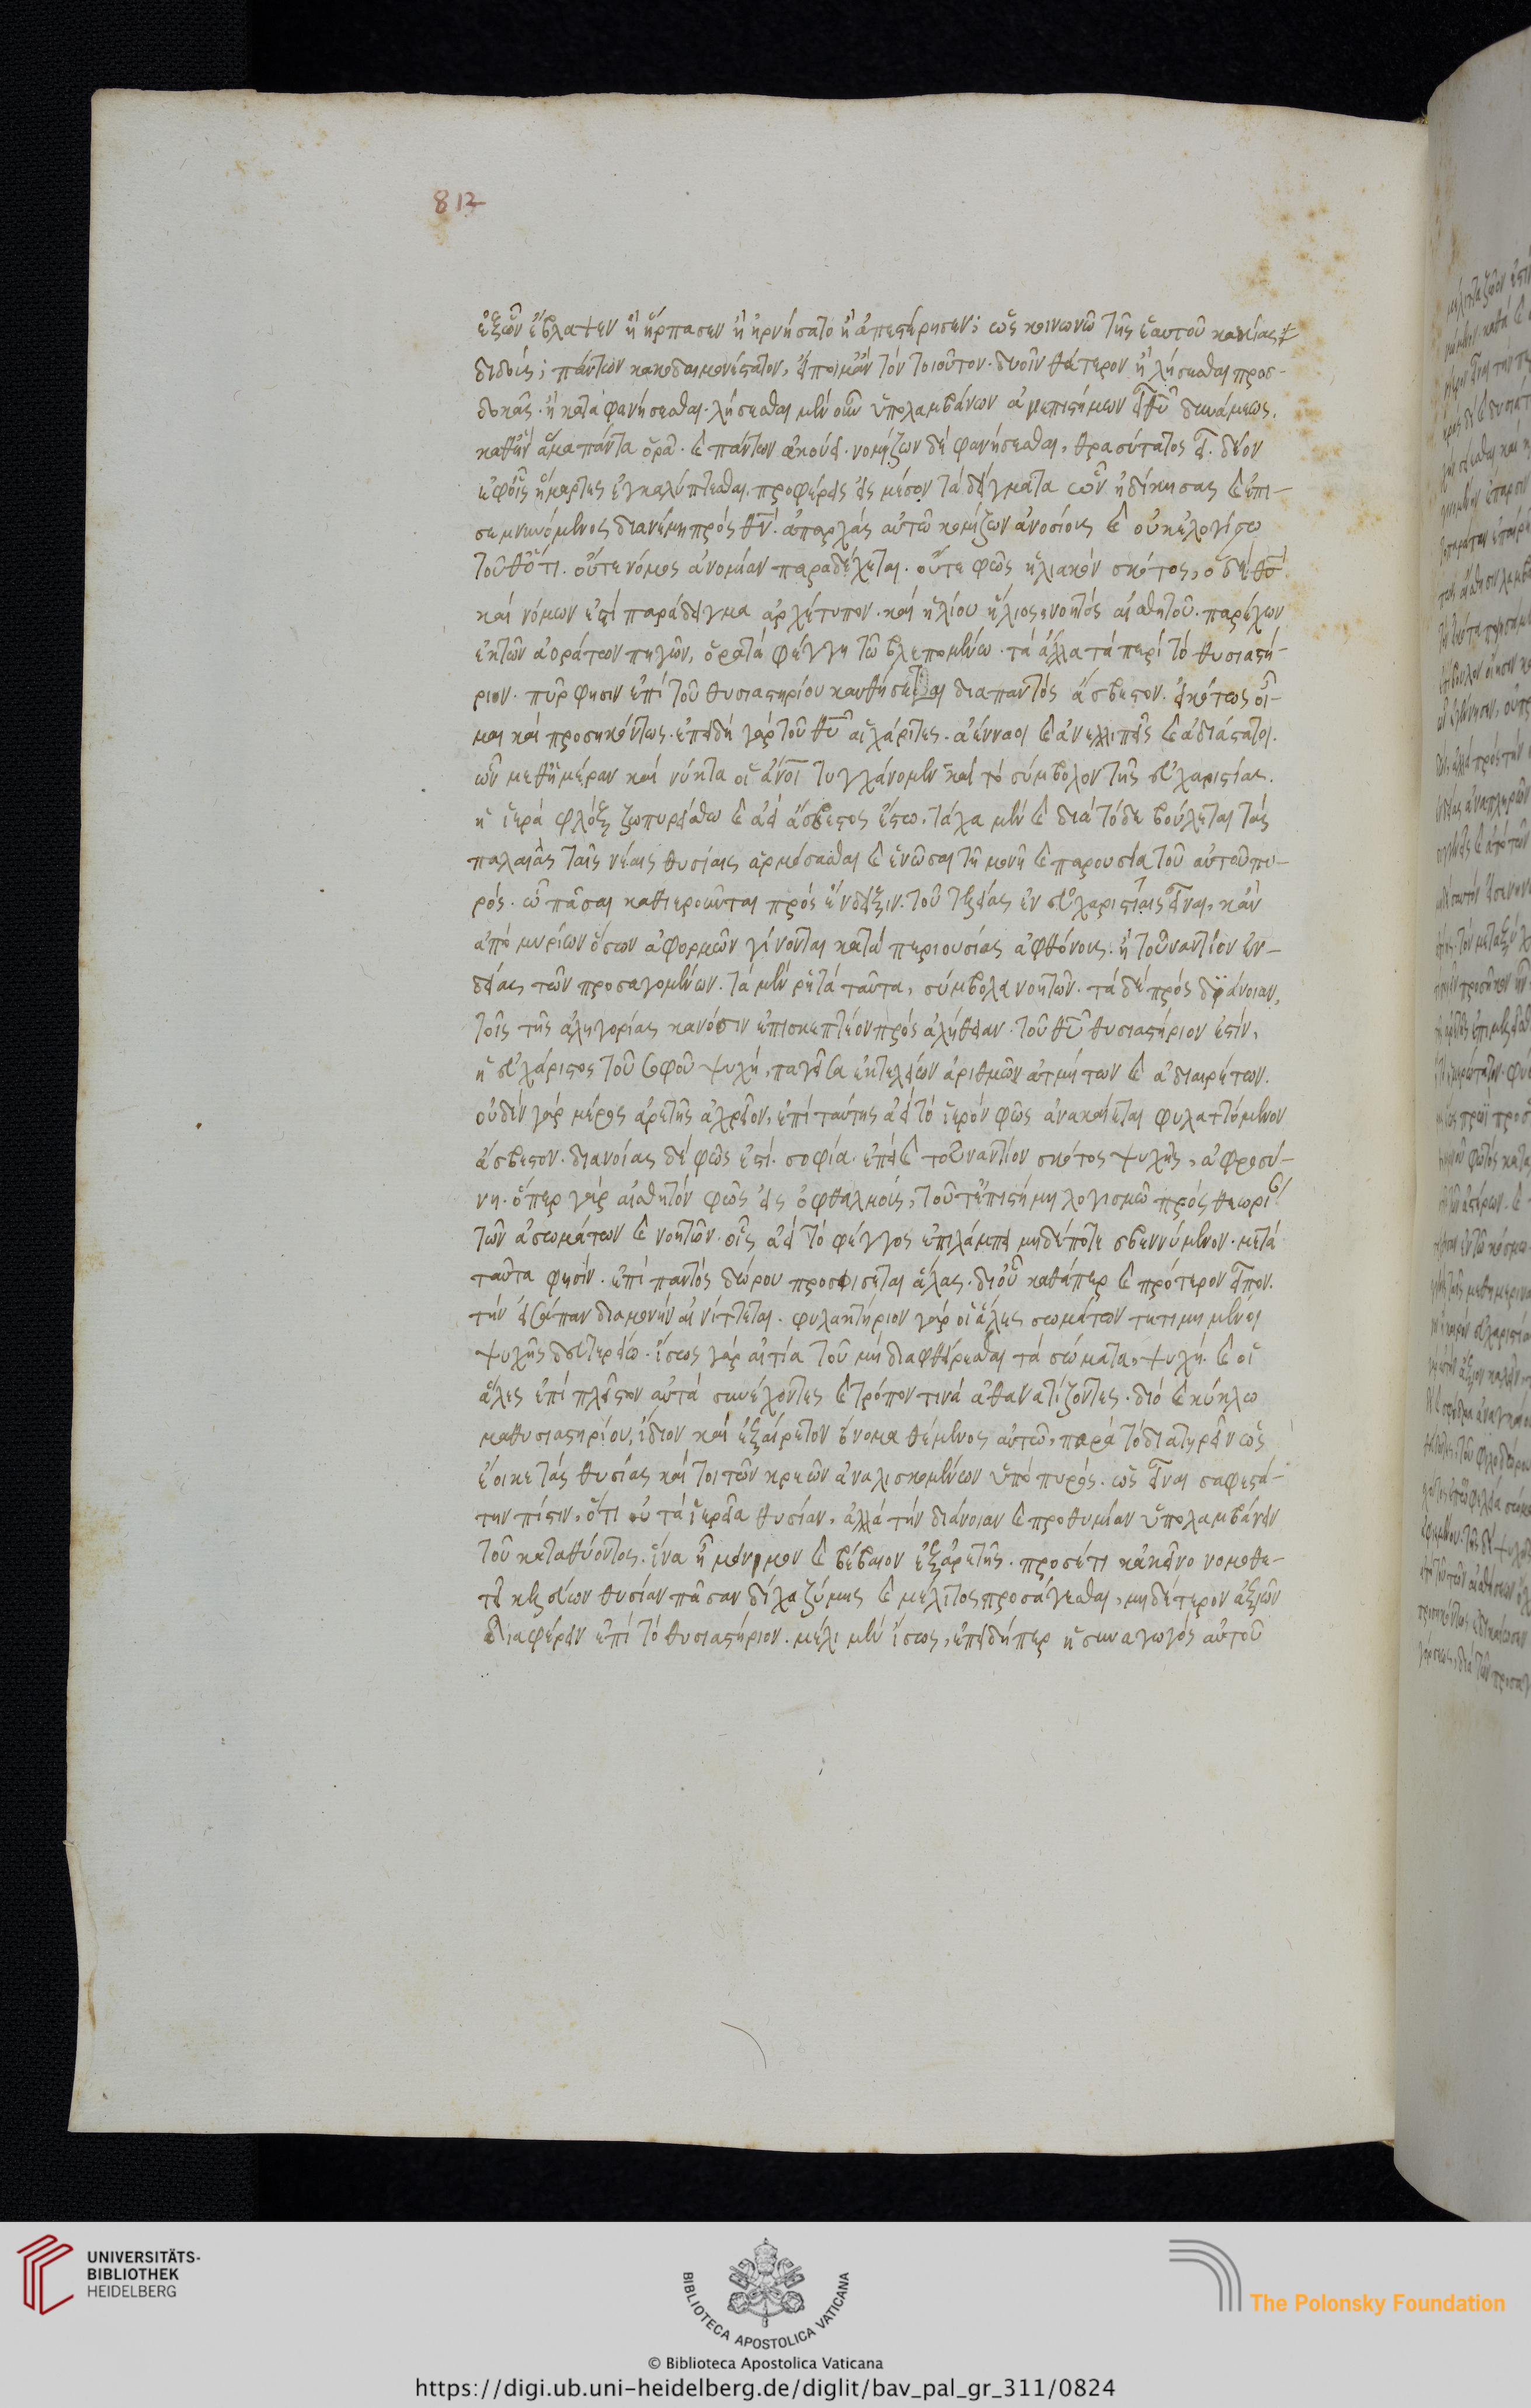 812
ἐξῶν ἔβλαψεν ἢ ἥρπασεν ἢ ἠρνήσατο ἢ ἀπεστέρησεν; ὡς κοινωνῶ τῆς ἑαυτοῦ κακίας
διδοὺς; πάντων κακοδαιμονέστατον, εἴποιμἂν τὸν τοιοῦτον. δυοῖν θάτερον ἢ λήσεσθαι προσ-
δοκᾶς. ἢ καταφανήσεσθαι. λήσεσθαι μὲν οὖν ὑπολαμβάνων ἀνεπιστήμων εἶ θυ δυνάμεως,
καθἣν ἅμα πάντα ὁρᾶ. καὶ πάντων ἀκούει. νομίζων δὲ φανήσεσθαι, θρασύτατος εἶ. δέον
ἐφοἷς ἥμαρτες ἐγκαλύπτεσθαι. προφέρεις εἰς μέσον τὰ δείγματα ὧν ἠδίκησας καὶ ἐπι-
σεμνυνόμενος διανέμῃ πρὸς θν. ἀπαρχὰς αὐτῶ κομίζων ἀνοσίους καὶ οὐκ ἐλογίσω
τοῦθ ὅτι. οὔτε νόμος ἀνομίαν παραδέχεται. οὔτε φῶς ἡλιακὸν σκότος, ὁ δὲ θς
καὶ νόμων ἐστὶ παράδειγμα ἀρχέτυπον. καὶ ἡλίου ἥλιος, νοητὸς αἰσθητοῦ. παρέχων
ἐκτῶν ἀοράτων πηγῶν, ὁρατὰ φέγγη τῶ βλεπομένω. τὰ ἄλλα τὰ περὶ τὸ θυσιαστή-
ριον. πῦρ φησιν ἐπὶ τοῦ θυσιαστηρίου καυθήσεται διαπαντὸς ἄσβεστον. εἰκότως οἶ-
μαι καὶ προσηκόντως. ἐπειδὴ γὰρ τοῦ θυ αἱ χάριτες. ἀένναοι καὶ ἀνελλιπεῖς καὶ ἀδιάστατοι.
ὧν μεθ ἡμέραν καὶ νύκτα οἱ ἄνοι τυγχάνομεν καὶ τὸ σύμβολον τῆς εὐχαριστίας.
ἡ ἱερὰ φλὸξ ζωπυρείσθω καὶ ἀεὶ ἄσβεστος ἔστω. τάχα μὲν καὶ διὰ τόδε βούλεται τὰς
παλαιὰς ταῖς νέαις θυσίαις ἁρμόσασθαι καὶ ἑνῶσαι τῆ μονῆ καὶ παρουσία τοῦ αὐτοῦ πυ-
ρός. ὧ πᾶσαι καθιεροῦνται πρὸς ἔνδειξιν. τοῦ τελείας ἐν εὐχαριστίαις εἶναι, κἂν
ἀπὸ μυρίων ὅσων ἀφορμῶν γίνονται κατὰ περιουσίας ἀφθόνους. ἢ τοὐναντίον ἐν-
δείας τῶν προσαγομένων. τὰ μὲν ῥητὰ ταῦτα, σύμβολα νοητῶν. τὰ δὲ πρὸς διάνοιαν,
τοῖς τῆς ἀλληγορίας κανόσιν ἐπισκεπτέον πρὸς ἀλήθειαν. τοῦ θυ θυσιαστήριον ἐστίν,
ἡ εὐχάριστος τοῦ σοφοῦ ψυχὴ, παγεῖσα ἐκ τελείων ἀριθμῶν ἀτμήτων καὶ ἀδιαιρέτων.
οὐδὲν γὰρ μέρος ἀρετῆς ἀχρεῖον, ἐπὶ ταύτης ἀεὶ τὸ ἱερὸν φῶς ἀνακαίεται φυλαττόμενον
ἄσβεστον. διανοίας δὲ φῶς ἐστι. σοφία. ἐπεὶ καὶ τοὐναντίον σκότος ψυχῆς, ἀφροσύ-
νη. ὅπερ γὰρ αἰσθητὸν φῶς εἰς ὀφθαλμοὺς, τοῦτ ἐπιστήμη λογισμῶ πρὸς θεωρίαν
τῶν ἀσωμάτων καὶ νοητῶν. οἷς ἀεὶ τὸ φέγγος ἐπιλάμπει μηδέποτε σβεννύμενον. μετὰ
ταῦτα φησὶν. ἐπὶ παντὸς δώρου προσοίσεται ἅλας. διοὗ καθάπερ καὶ πρότερον εἶπον.
τὴν εἰσάπαν διαμονὴν αἰνίττεται. φυλακτήριον γὰρ οἱ ἅλες σωμάτων τετιμημένοι
ψυχῆς δευτερείω. ἴσως γὰρ αἰτία τοῦ μὴ διαφθείρεσθαι τὰ σώματα, ψυχὴ. καὶ οἱ
ἅλες ἐπὶ πλεῖστον αὐτὰ συνέχοντες καὶ τρόπον τινὰ ἀθανατίζοντες. διὸ καὶ κύκλω
μαθυσιαστηρίου, ἴδιον καὶ ἐξαίρετον ὄνομα θέμενος αὐτῶ, παρὰ τὸ διατηρεῖν ὡς
ἔοικε τὰς θυσίας καί τοι τῶν κρεῶν ἀναλισκομένων ὑπὸ πυρός. ὡς εἶναι σαφεστά-
την πίστιν, ὅτι οὐ τὰ ἱερεῖα θυσίαν, ἀλλὰ τὴν διάνοιαν καὶ προθυμίαν ὑπολαμβάνειν
τοῦ καταθύοντος. ἵνα ἦ μόνιμον καὶ βέβαιον ἐξ ἀρετῆς. προσέτι κἀκεῖνο νομοθε-
τεῖ κελεύων θυσίαν πᾶσαν δίχα ζύμης καὶ μέλιτος προσάγεσθαι, μηδέτερον ἀξιῶν
διαφέρειν ἐπὶ τὸ θυσιαστήριον. μέλι μὲν ἴσως, ἐπειδήπερ ἡ συναγωγὸς αὐτοῦ
UNIVERSITÄTS-
BIBLIOTHEK
HEIDELBERG
BIBLIOTECA APOSTOLICA VATICANA
The Polonsky Foundation
© Biblioteca Apostolica Vaticana
https://digi.ub.uni-heidelberg.de/diglit/bav_pal_gr_311/0824